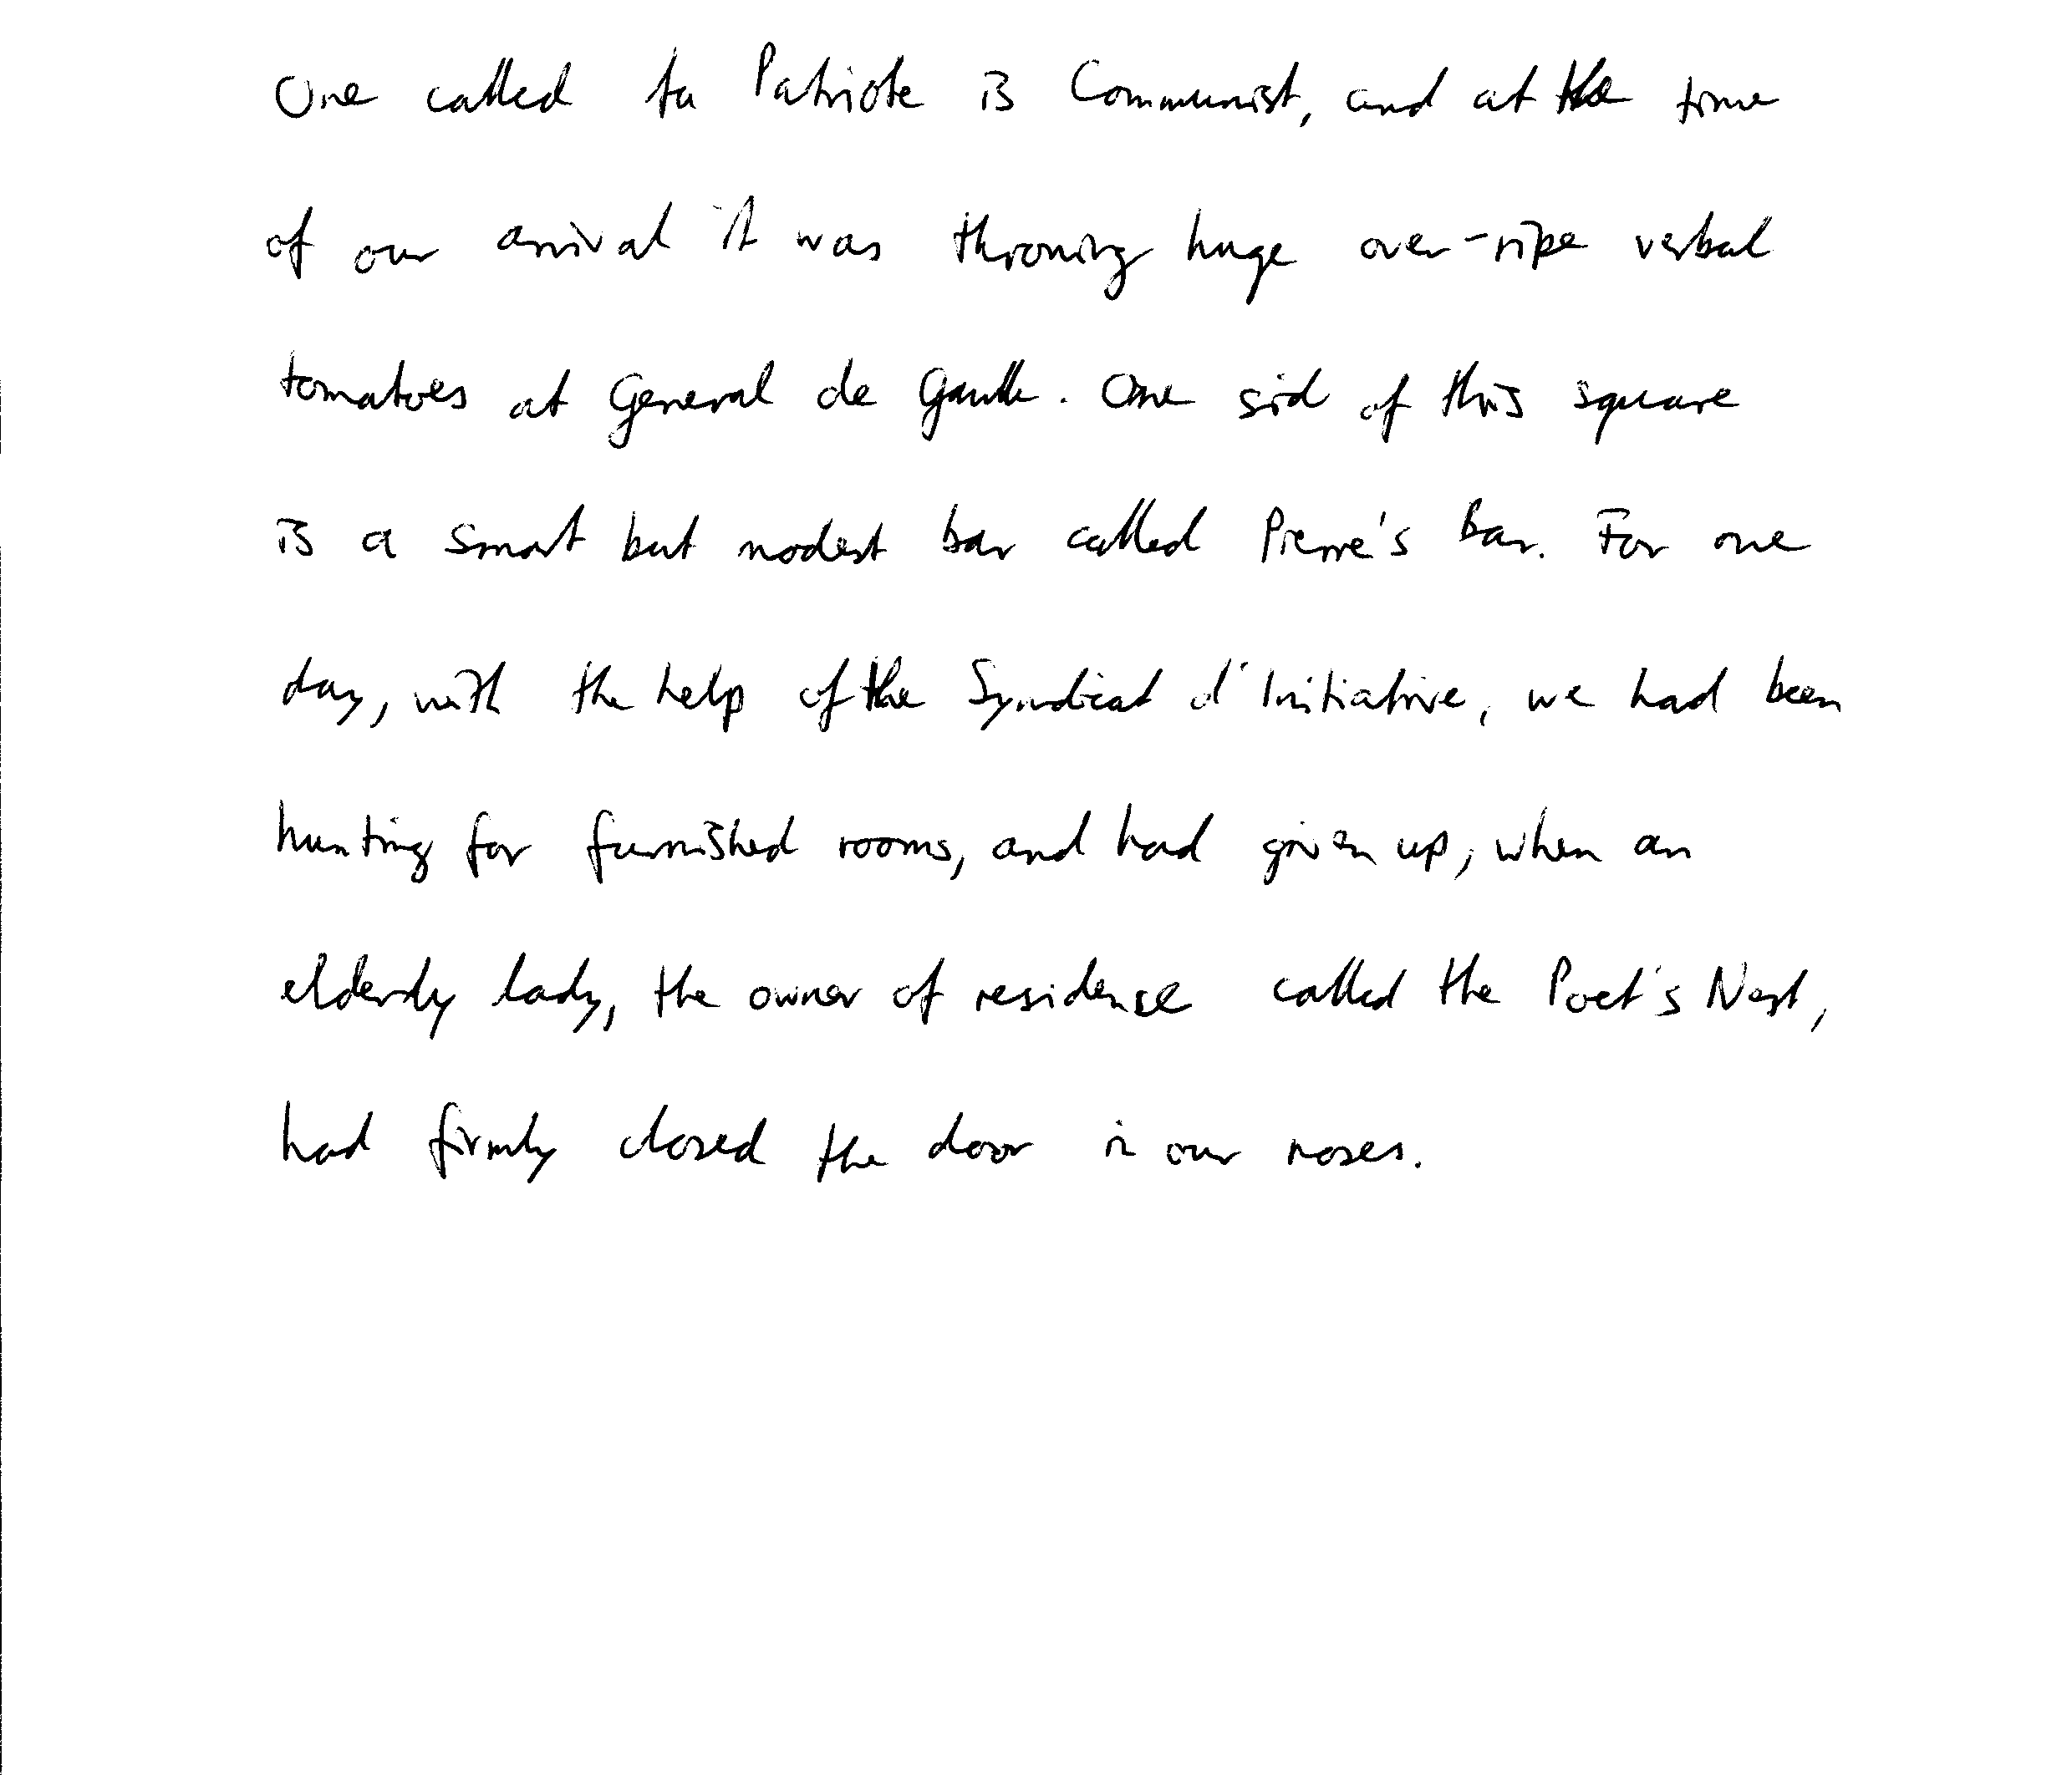 One called Le Patriote is Communist, and at the time
of our arrival it was throwing huge over-ripe verbal
tomatoes at General de Gaulle. One side of this square
is a smart but modest bar called Pierre's Bar. For one
day, with the help of the Syndicat d'Initiative, we had been
hunting for furnished rooms, and had given up, when an
elderly lady, the owner of residense called the Poet's Nest,
had firmly closed the door in our noses.